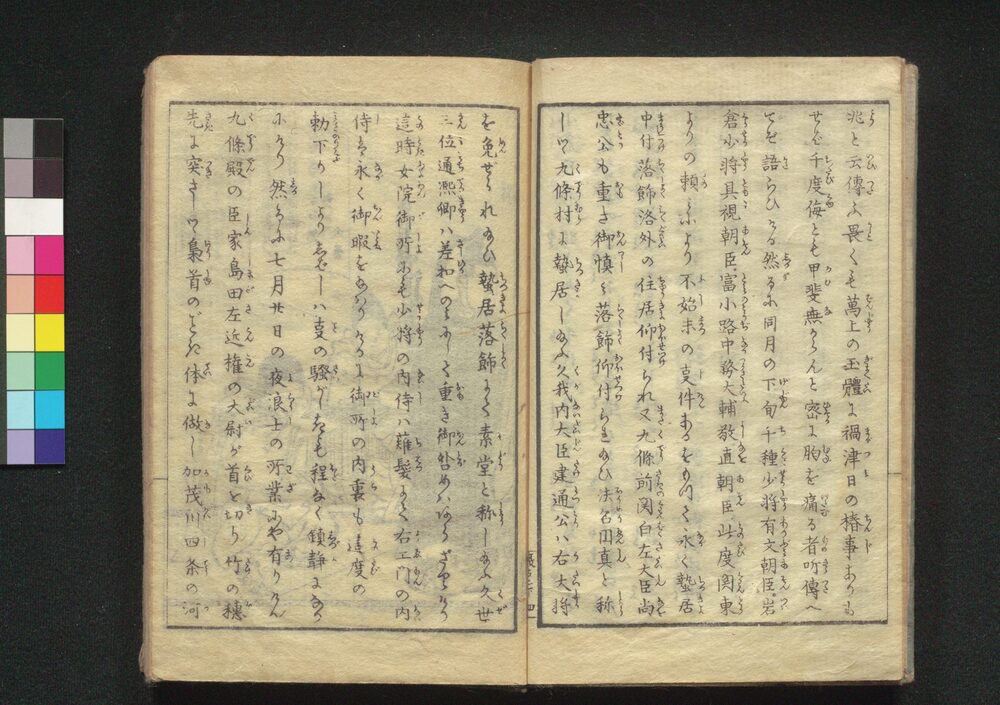 兆と云傳ふ畏くも萬上の玉體に禍津日の椿事ありも
せバ千度侮とも甲斐無からんと密に胸を痛る者听傳へ
てぞ語らひける然るに同月の下旬千種少将有文朝臣岩
倉少将具視朝臣富小路中務大輔敬直朝臣此度関東
よりの頼ニより不始末の事件あるをもつて永く蟄居
中付落飾洛外の住居仰付られ又九條前関白左大臣尚
忠公も重き御慎ミ落飾仰付られ給ひ法名円真と称
しつゝ九條村に蟄居し給ふ久我内大臣建通公ハ右大将
を免せられ給ひ蟄居落飾して素堂と称し給ふ久世
三位通凞卿ハ差扣へのミにして重き御咎めハあらざりけり
這時女院御所にも少将の内侍ハ薙髪して右エ門の内
侍ハ永く御暇をぞありけるに御所の内裏も這度の
勅下りしよりしバしハ支の騒がしきも程なく鎮静になり
にけり 然るに七月廿日の夜浪士の所業にや有りけん
九條殿の臣家島田左近権の大尉が首を切り竹の穂
先に突さしつ梟首のごとき体に做し加茂川四条の河